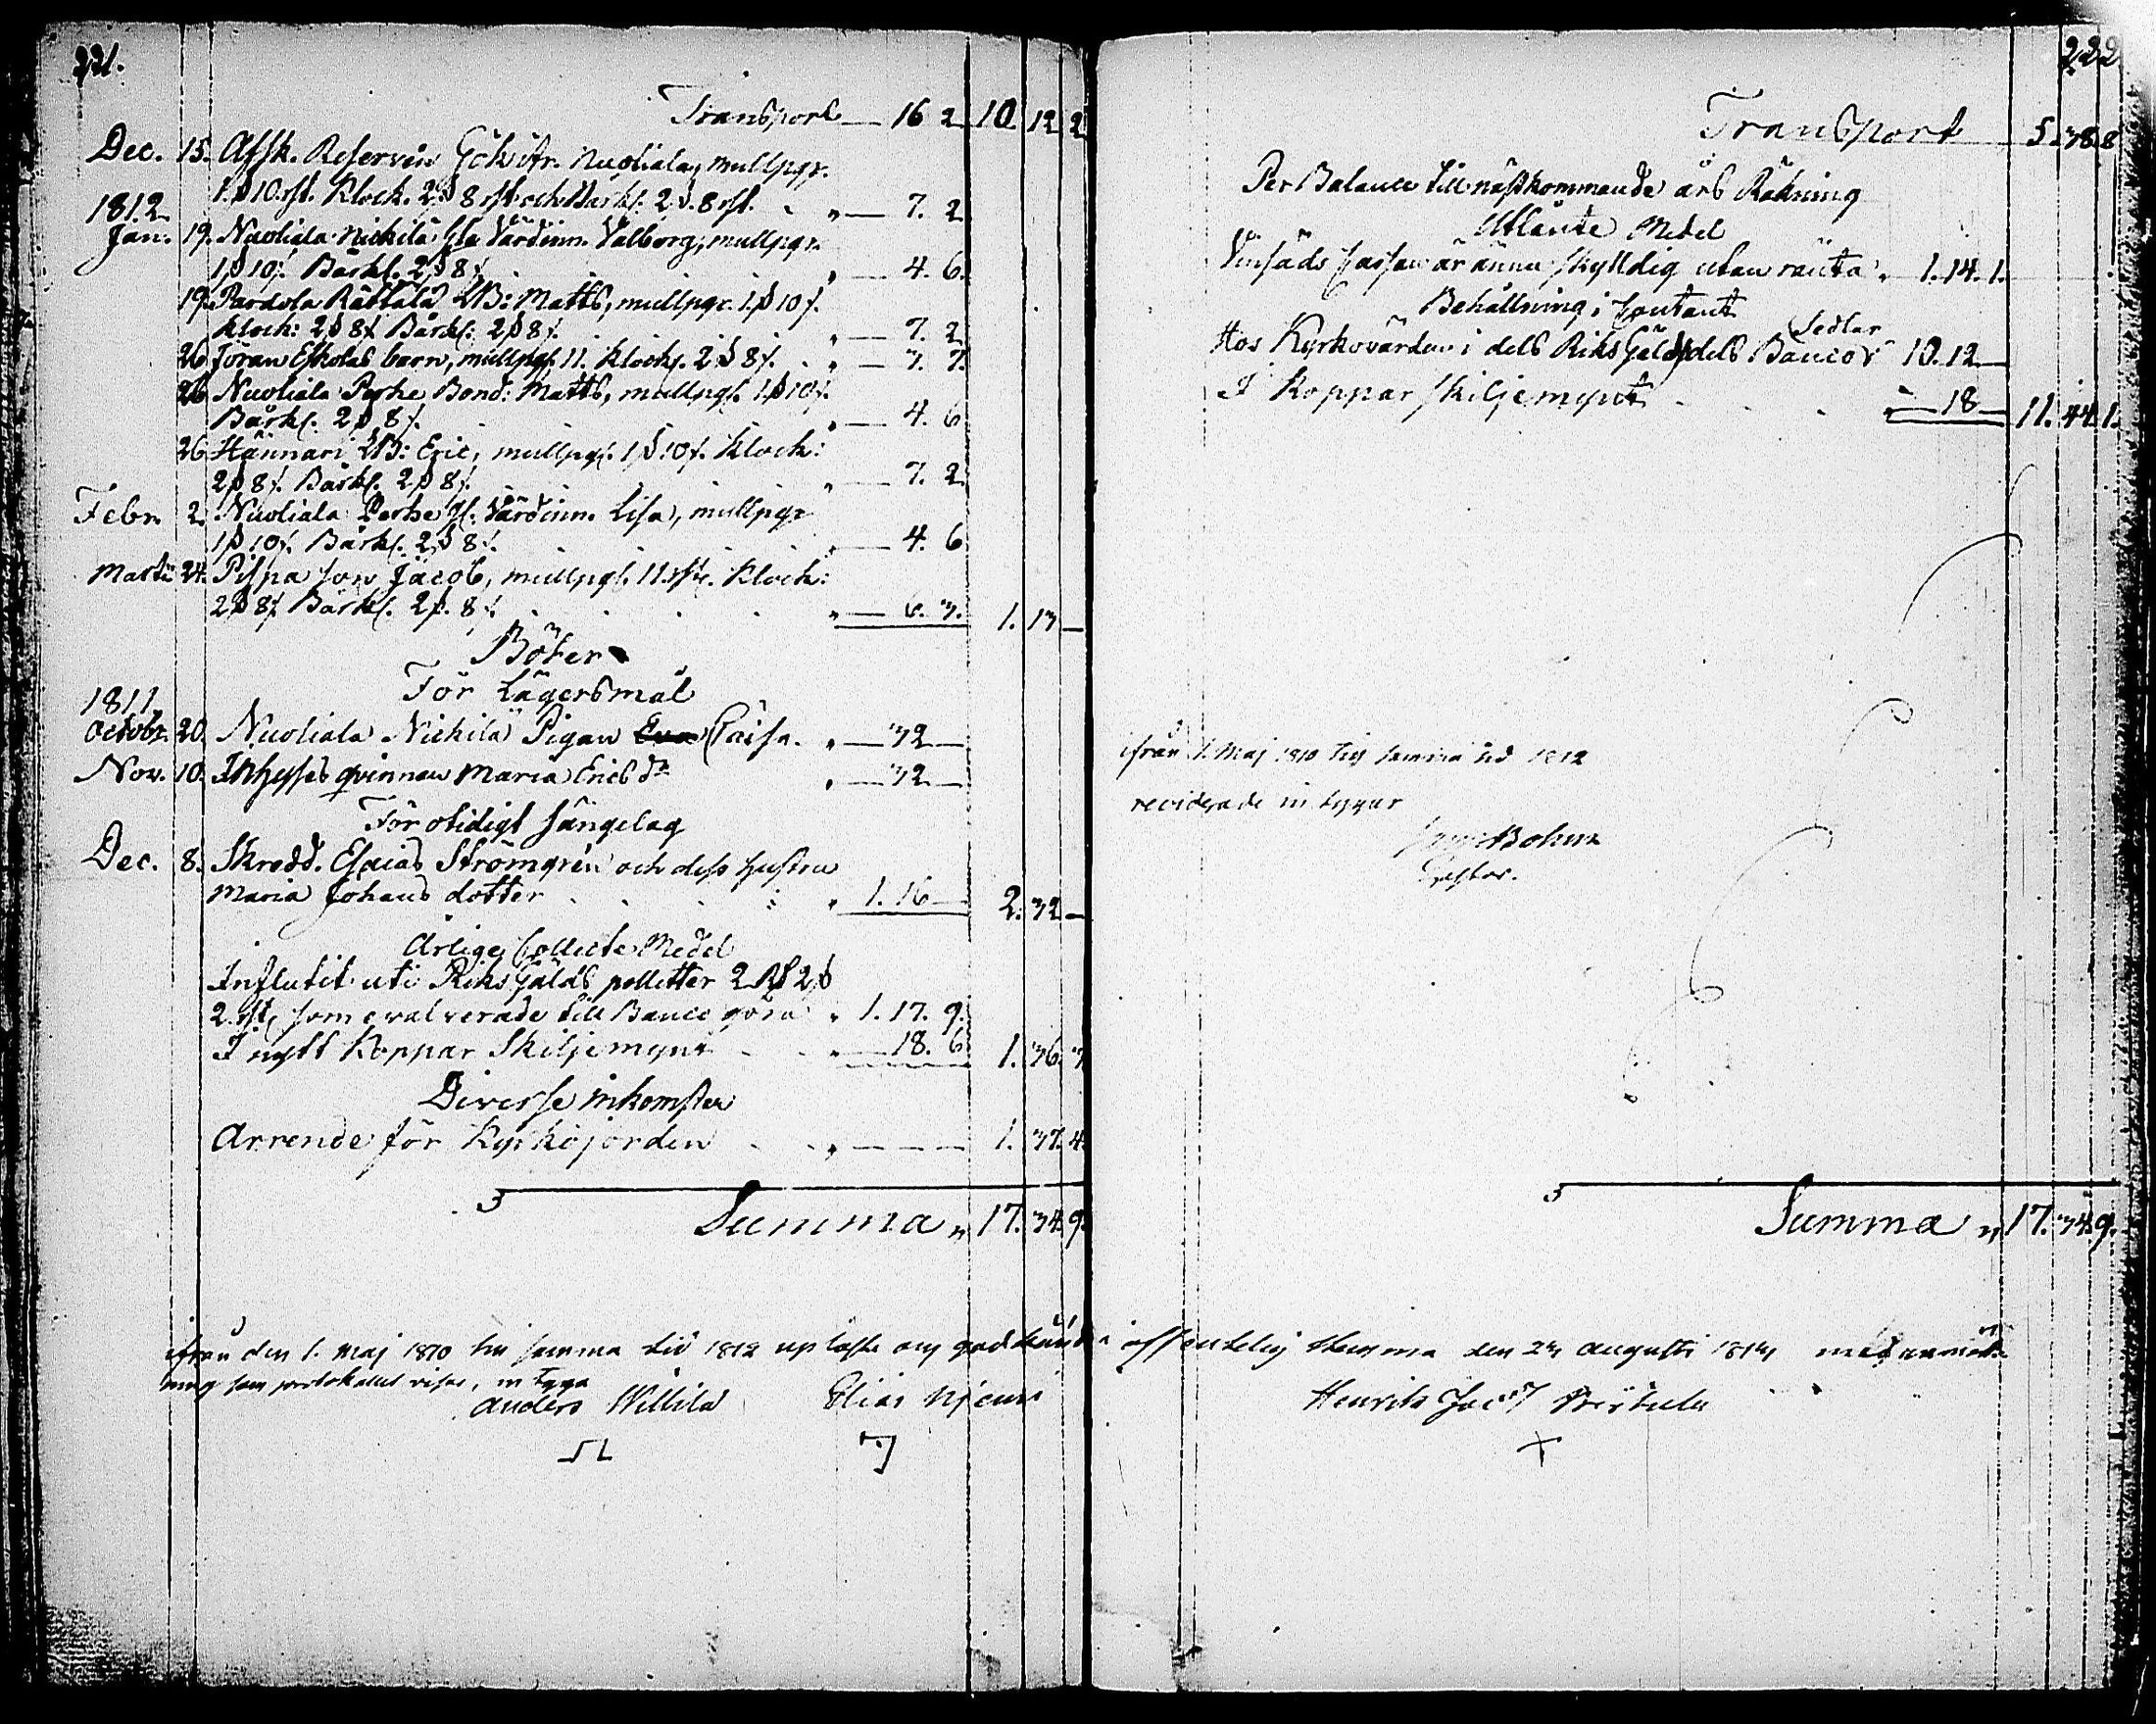 221.
Transport — 16 2 10 12 2
Dec. 15. Afsk. Reserven Gök ifr. Nuoliala, mullpgr.
1 ß 10 rst. Klock. 2 ß 8 rst och Bårkl. 2 ß. 8 rst. — 7. 2
1812
Jan. 19. Nuoliala Nickilä Gla Värdinn. Valborg, mullpgr.
1 ß 10 r. Bårkl. 2 ß 8 r. — 4. 6.
19. Pardola Rättälä : Matts, mullpgr. 1. ß 10 r.
Klock: 2 ß 8 r. Bårkl: 2 ß 8 r. — 7. 2
26 Jöran Eskolas barn, mullpgr. 11. Klock. 2 ß 8 r. — 3. 7.
26 Nuoliala Perhe Bond: Matts, mullpgr. 1 ß 10 r.
Bårkl. 2 ß 8 r. — 4. 6
26 Hännäri : Eric, mullpgr. 1 ß 10 r. Klock:
2 ß 8 r. Bårkl. 2 ß 8 r. — 7. 2
Febr. 2. Nuoliala Perhe Gl: Värdinn. Lisa, mullpgr
1 ß 10 r. Bårkl. 2 ß 8 r. — 4. 6
Martii 24. Pispa son Jacob, mullpgr. 11 rst. Klock:
2 ß 8 r. Bårkl. 2 ß. 8 r. — 6. 3. 1. 13 —
Böter
För Lägersmål
1811
Octobr. 20. Nuoliala Nickilä Pigan Eva Caisa. — 32 —
Nov. 10. Inhyses qvinnan Maria Ericsdr — 32 —
För otidigt sängelag
Dec. 8. Skredd. Esaias Strömgrén och dess hustru
Maria Johans dotter 1. 16 — 2. 32 —
Årlige Collecte Medel
Influtit uti Riks Gälds polletter 2 Rd 2 ß
2 rst, som evalverade till Banco göra 1. 17. 9.
I nytt Koppar Skiljemynt — 18. 6. 1. 36. 3
Diverse inkomster
Arrende för Kyrkojorden — — — 1. 37. 4.
Summa 17. 34. 9.
222
Transport 5. 38. 8
Per Balance till nästkommande års Räkning
Utlånte Medel
Vinsäds Cassan är ännu skyldig utan ränta 1. 14. 1.
Behållning i Contant
Hos Kyrkovärden i dels Riks Gälds dels Banco Sedlar 10. 12 —
I Koppar skiljemynt — 18 — 11. 44. 1.
ifrån 1. Maj 1810 till samma tid 1812
reviderade intygar
Bohm
Summa 17. 34. 9.
ifrån den 1. Maj 1810 till samma tid 1812 upläste och godkände i offentelig stemma den 23 augusti 1813 med anmärk-
ning som protokollet visar, intyga
Anders Willilä Elias Henrik Jac:s